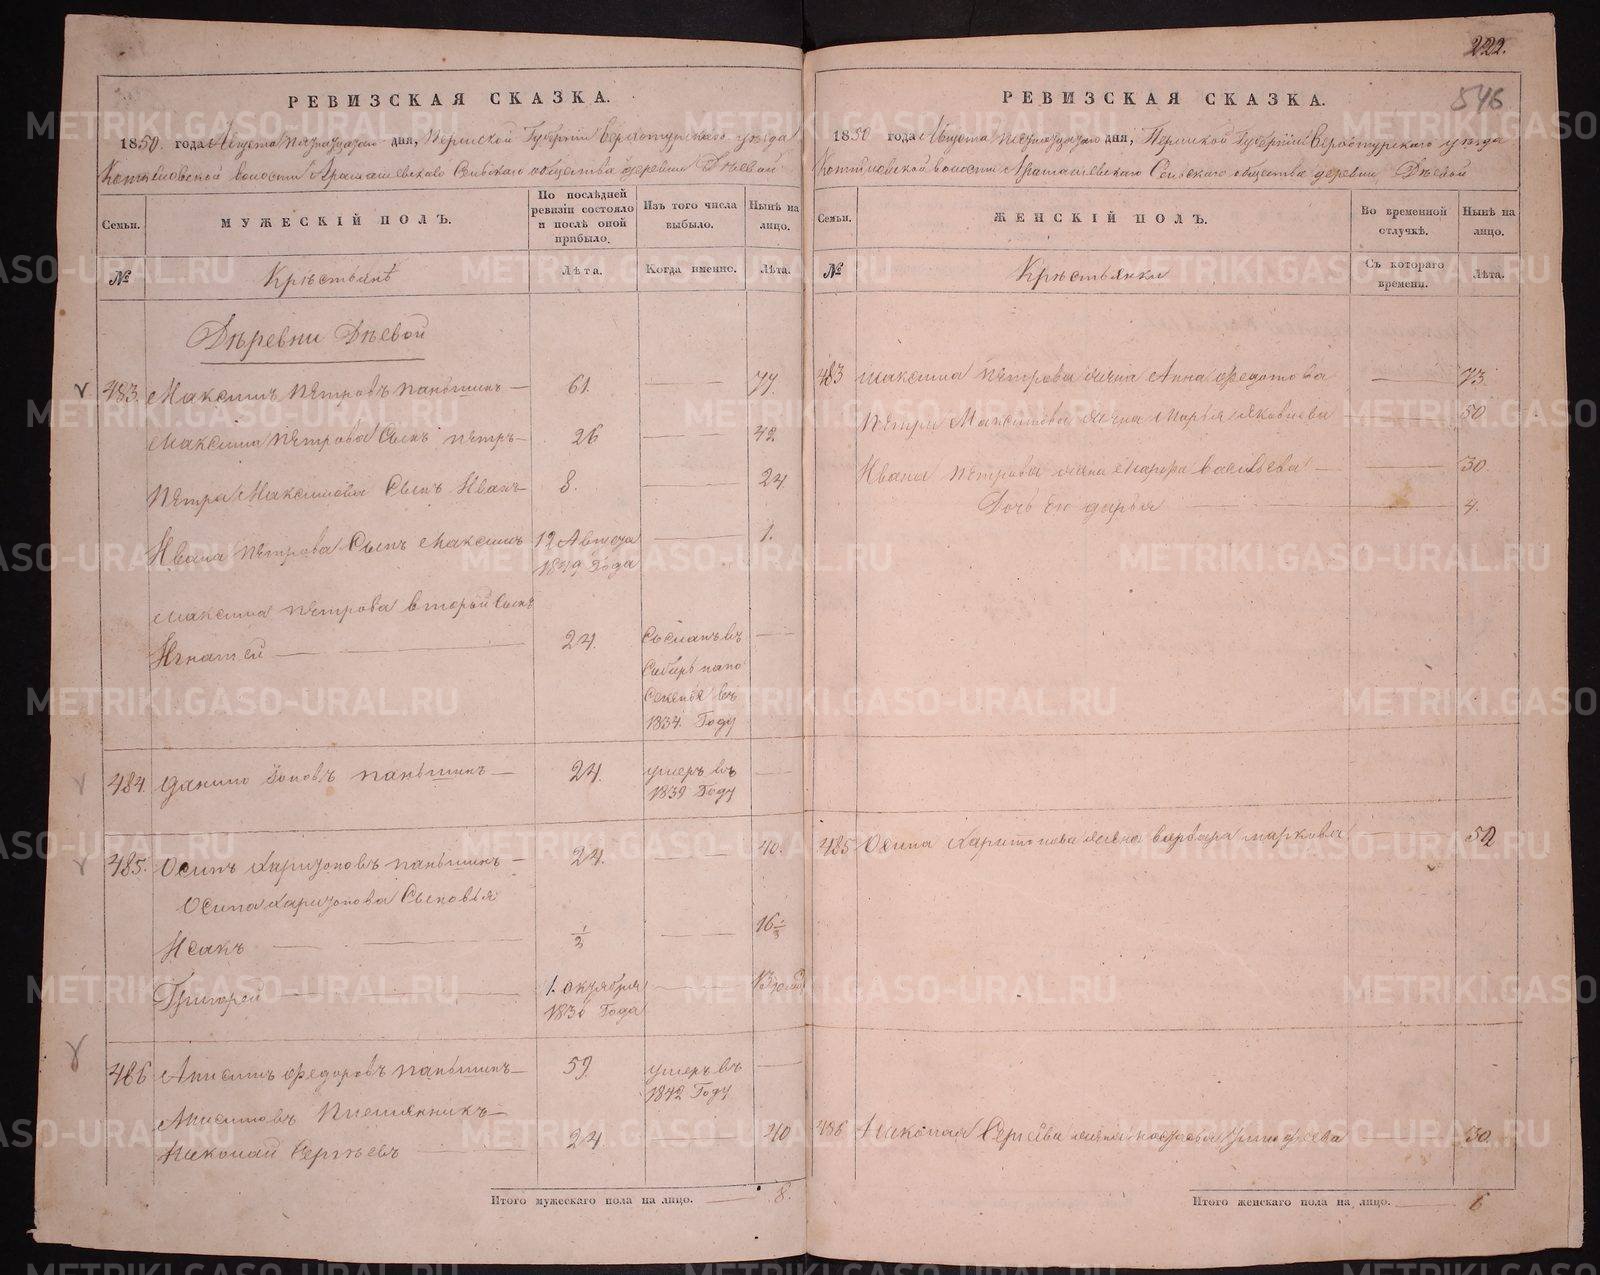 РЕВИЗСКАЯ СКАЗКА.
1850. года Августа дня, Пермской Губерніи Верхотурскаго уѣзда
волости Арамашевскаго Сельскаго общества деревни Дѣевой
Семьи.
МУЖЕСКІЙ ПОЛЪ.
По послѣдней ревизіи состояло и послѣ оной прибыло.
Изъ того числа выбыло.
Нынѣ на лицо.
№
Крѣстьянѣ
Лѣта.
Когда именно.
Лѣта.
Дѣревни Дѣевой
483. Максимъ Пѣтровъ Паньшинъ — 61. — 77.
Максима Пѣтрова Сынъ Пѣтръ — 26 — 42.
Пѣтра Максимова Сынъ Иванъ — 8. — 24.
Ивана Пѣтрова Сынъ Максимъ 12 Августа — 1.
1849 Года
Максима Пѣтрова второй Сынъ
Игнатей — 24. Сосланъ въ —
Сибирь на по
селенье въ
1834. Году
484. Данило Паньшинъ — 24. умеръ въ —
1839 Году
485. Осипъ Харитоновъ Паньшинъ — 24. — 40.
Осипа Харитонова Сыновья
Исакъ — 1/3 — 16 1/3
Григорей — 1. октября —
Года
486 Анисимъ Федоровъ Паньшинъ — 59. умеръ въ —
1842 Году
Анисимовъ Племянникъ —
Николай Сергѣевъ — 24. — 40
Итого мужескаго пола на лицо. — 8.
222.
546
РЕВИЗСКАЯ СКАЗКА.
1850 года Августа дня, Пермской Губерніи Верхотурскаго уѣзда
волости Арамашевскаго Сельскаго общества деревни Дѣевой
Семьи.
ЖЕНСКІЙ ПОЛЪ.
Во временной отлучкѣ.
Нынѣ на лицо.
№
Крѣстьянки
Съ котораго времени.
Лѣта.
483 Максима Пѣтрова жена Анна Федотова — 73.
Пѣтра Максимова жена Марья Яковлева — 50
Ивана Пѣтрова жена Марфа Васильева — 30.
Дочь Его Дарья — 4.
485 Осипа Харитонова жена Варвара Маркова — 52
486 Николая Сергѣева жена — 30.
Итого женскаго пола на лицо. — 6
METRIKI.GASO-URAL.RU